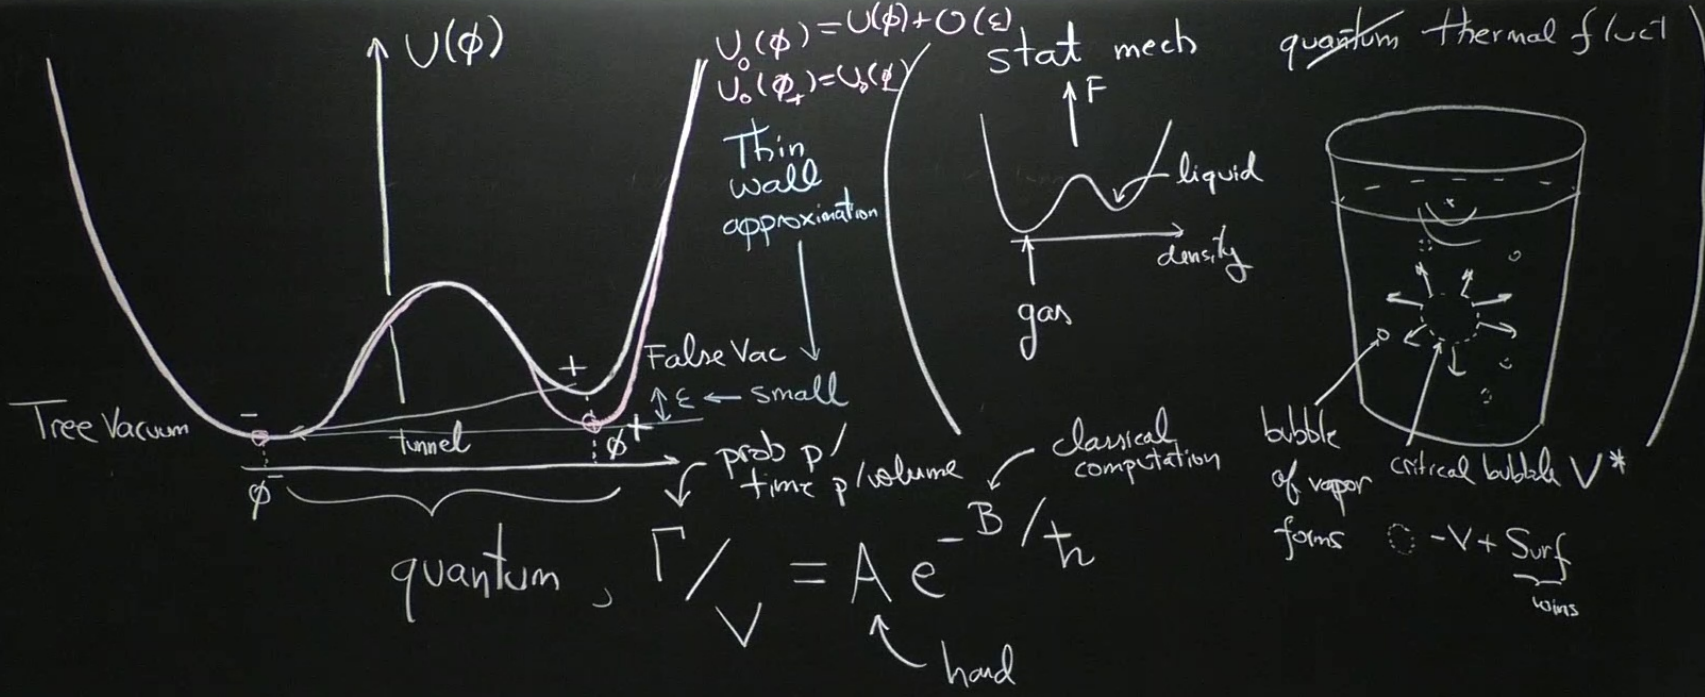 U(ϕ)
U₀(ϕ) = U(ϕ) + O(ε)
U₀(ϕ₊) = U₀(ϕ₋)
Thin
wall
approximation
+
False Vac
ε ← small
Tree Vacuum
−
tunnel
ϕ⁺
ϕ⁻
quantum,
prob p/
time p/volume
Γ/V = A e^{-B/ħ}
classical
computation
hard
stat mech
F
liquid
density
gas
quantum thermal fluct
bubble
of vapor
forms
critical bubble V*
-V + Surf
wins